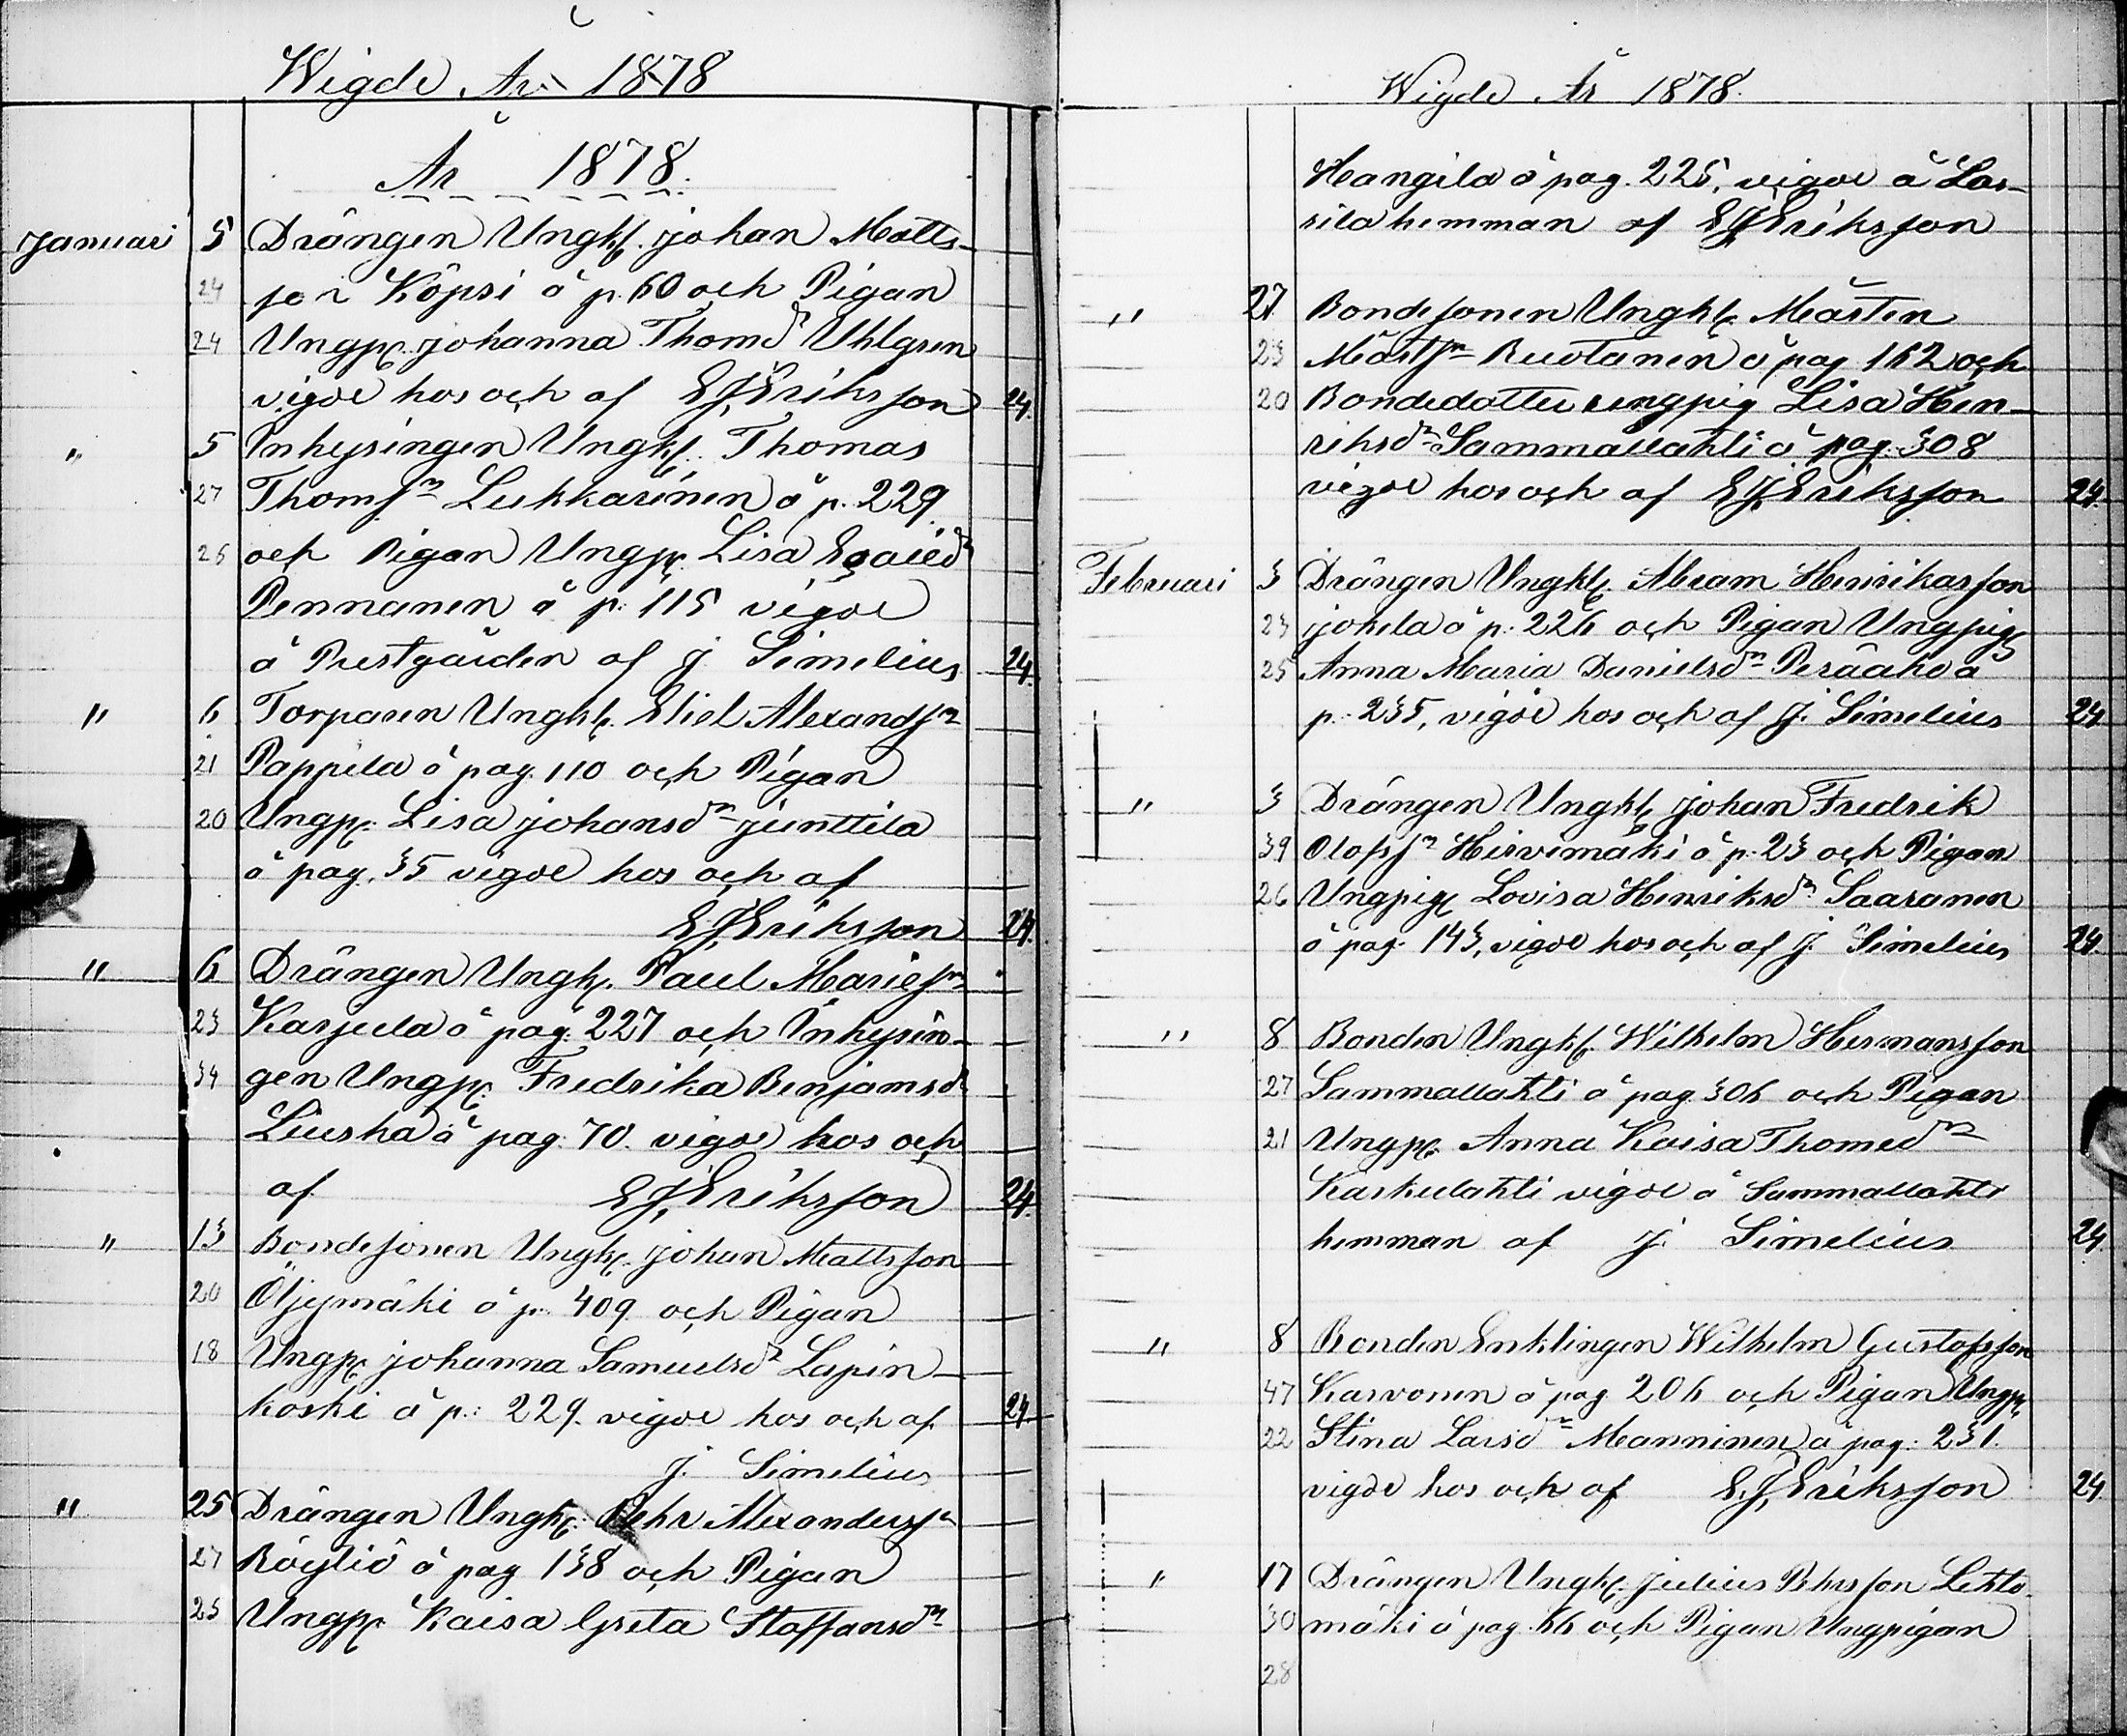 Wigde År 1878
År 1878.
Januari 5 Drängen Ungkl. Johan Matts-
24 son Köpsi å p. 60 och Pigan
24 Ungp. Johanna Thomdr Uhlgren
vigde hos och af E J Eriksson 24.
" 5 Inhysingen Ungkl. Thomas
27 Thomsn Lukkarinen å p. 229.
26 och Pigan Ungp. Lisa Esaiedr
Pennanen å p. 115 vigde
å Prestgården af J. Simelius 24.
" 6 Torparen Ungkl. Eliel Alexandsn
21 Pappila å pag. 110 och Pigan
20 Ungp. Lisa Johansdr Junttila
å pag. 35 vigde hos och af
E J Eriksson 24.
" 6 Drängen Ungkl. Paul Mariesn
23 Karjula å pag. 227 och Inhysin-
34 gen Ungp. Fredrika Benjamsdr
Liuska å pag. 70. vigde hos och
af E J Eriksson 24.
" 13 Bondesonen Ungkl. Johan Mattsson
20 Öljymäki å p. 409 och Pigan
18 Ungp. Johanna Samuelsdr Lapin-
koski å p.: 229. vigde hos och af 24
J. Simelius
" 25 Drängen Ungkl. Pehr Alexandersn
27 Röyliö å pag 138 och Pigan
25 Ungp. Kaisa Greta Staffansdr
Wigde År 1878.
Hangila å pag. 225, vigde å Las-
sila hemman af E J Eriksson
" 27. Bondesonen Ungkl. Mårten
23 Mårtsn Ruotanen å pag 162 och
20 Bondedotter ungpig Lisa Hen-
riksdr Sammallahti å pag. 308
vigde hos och af E J Eriksson 24.
Februari 3 Drängen Ungkl. Abram Henriksson
23 Jokela å p. 226 och Pigan Ungpig.
25 Anna Maria Danielsdr Peräaho å
p. 235, vigde hos och af J. Simelius 24
" 3 Drängen Ungkl. Johan Fredrik
39 Olofsn Hirvimäki å p. 23 och Pigan
26 Ungpig. Lovisa Henriksdr Saaranen
å pag. 143, vigde hos och af J. Simelius 24.
" 8 Bonden Ungkl. Wilhelm Hermansson
27 Sammallahti å pag 306 och Pigan
21 Ungp. Anna Kaisa Thomedr
Kaskulahti vigde å Sammallahti
hemman af J. Simelius 24.
" 8 Bonden Enklingen Wilhelm Gustafsson
47 Karvonen å pag 206 och Pigan Ungp.
22 Stina Larsdr Manninen å pag: 231.
vigde hos och af E. J. Eriksson 24
" 17 Drängen Ungkl. Julius Pehrsson Lehto-
30 mäki å pag. 66 och Pigan Ungpigan
28